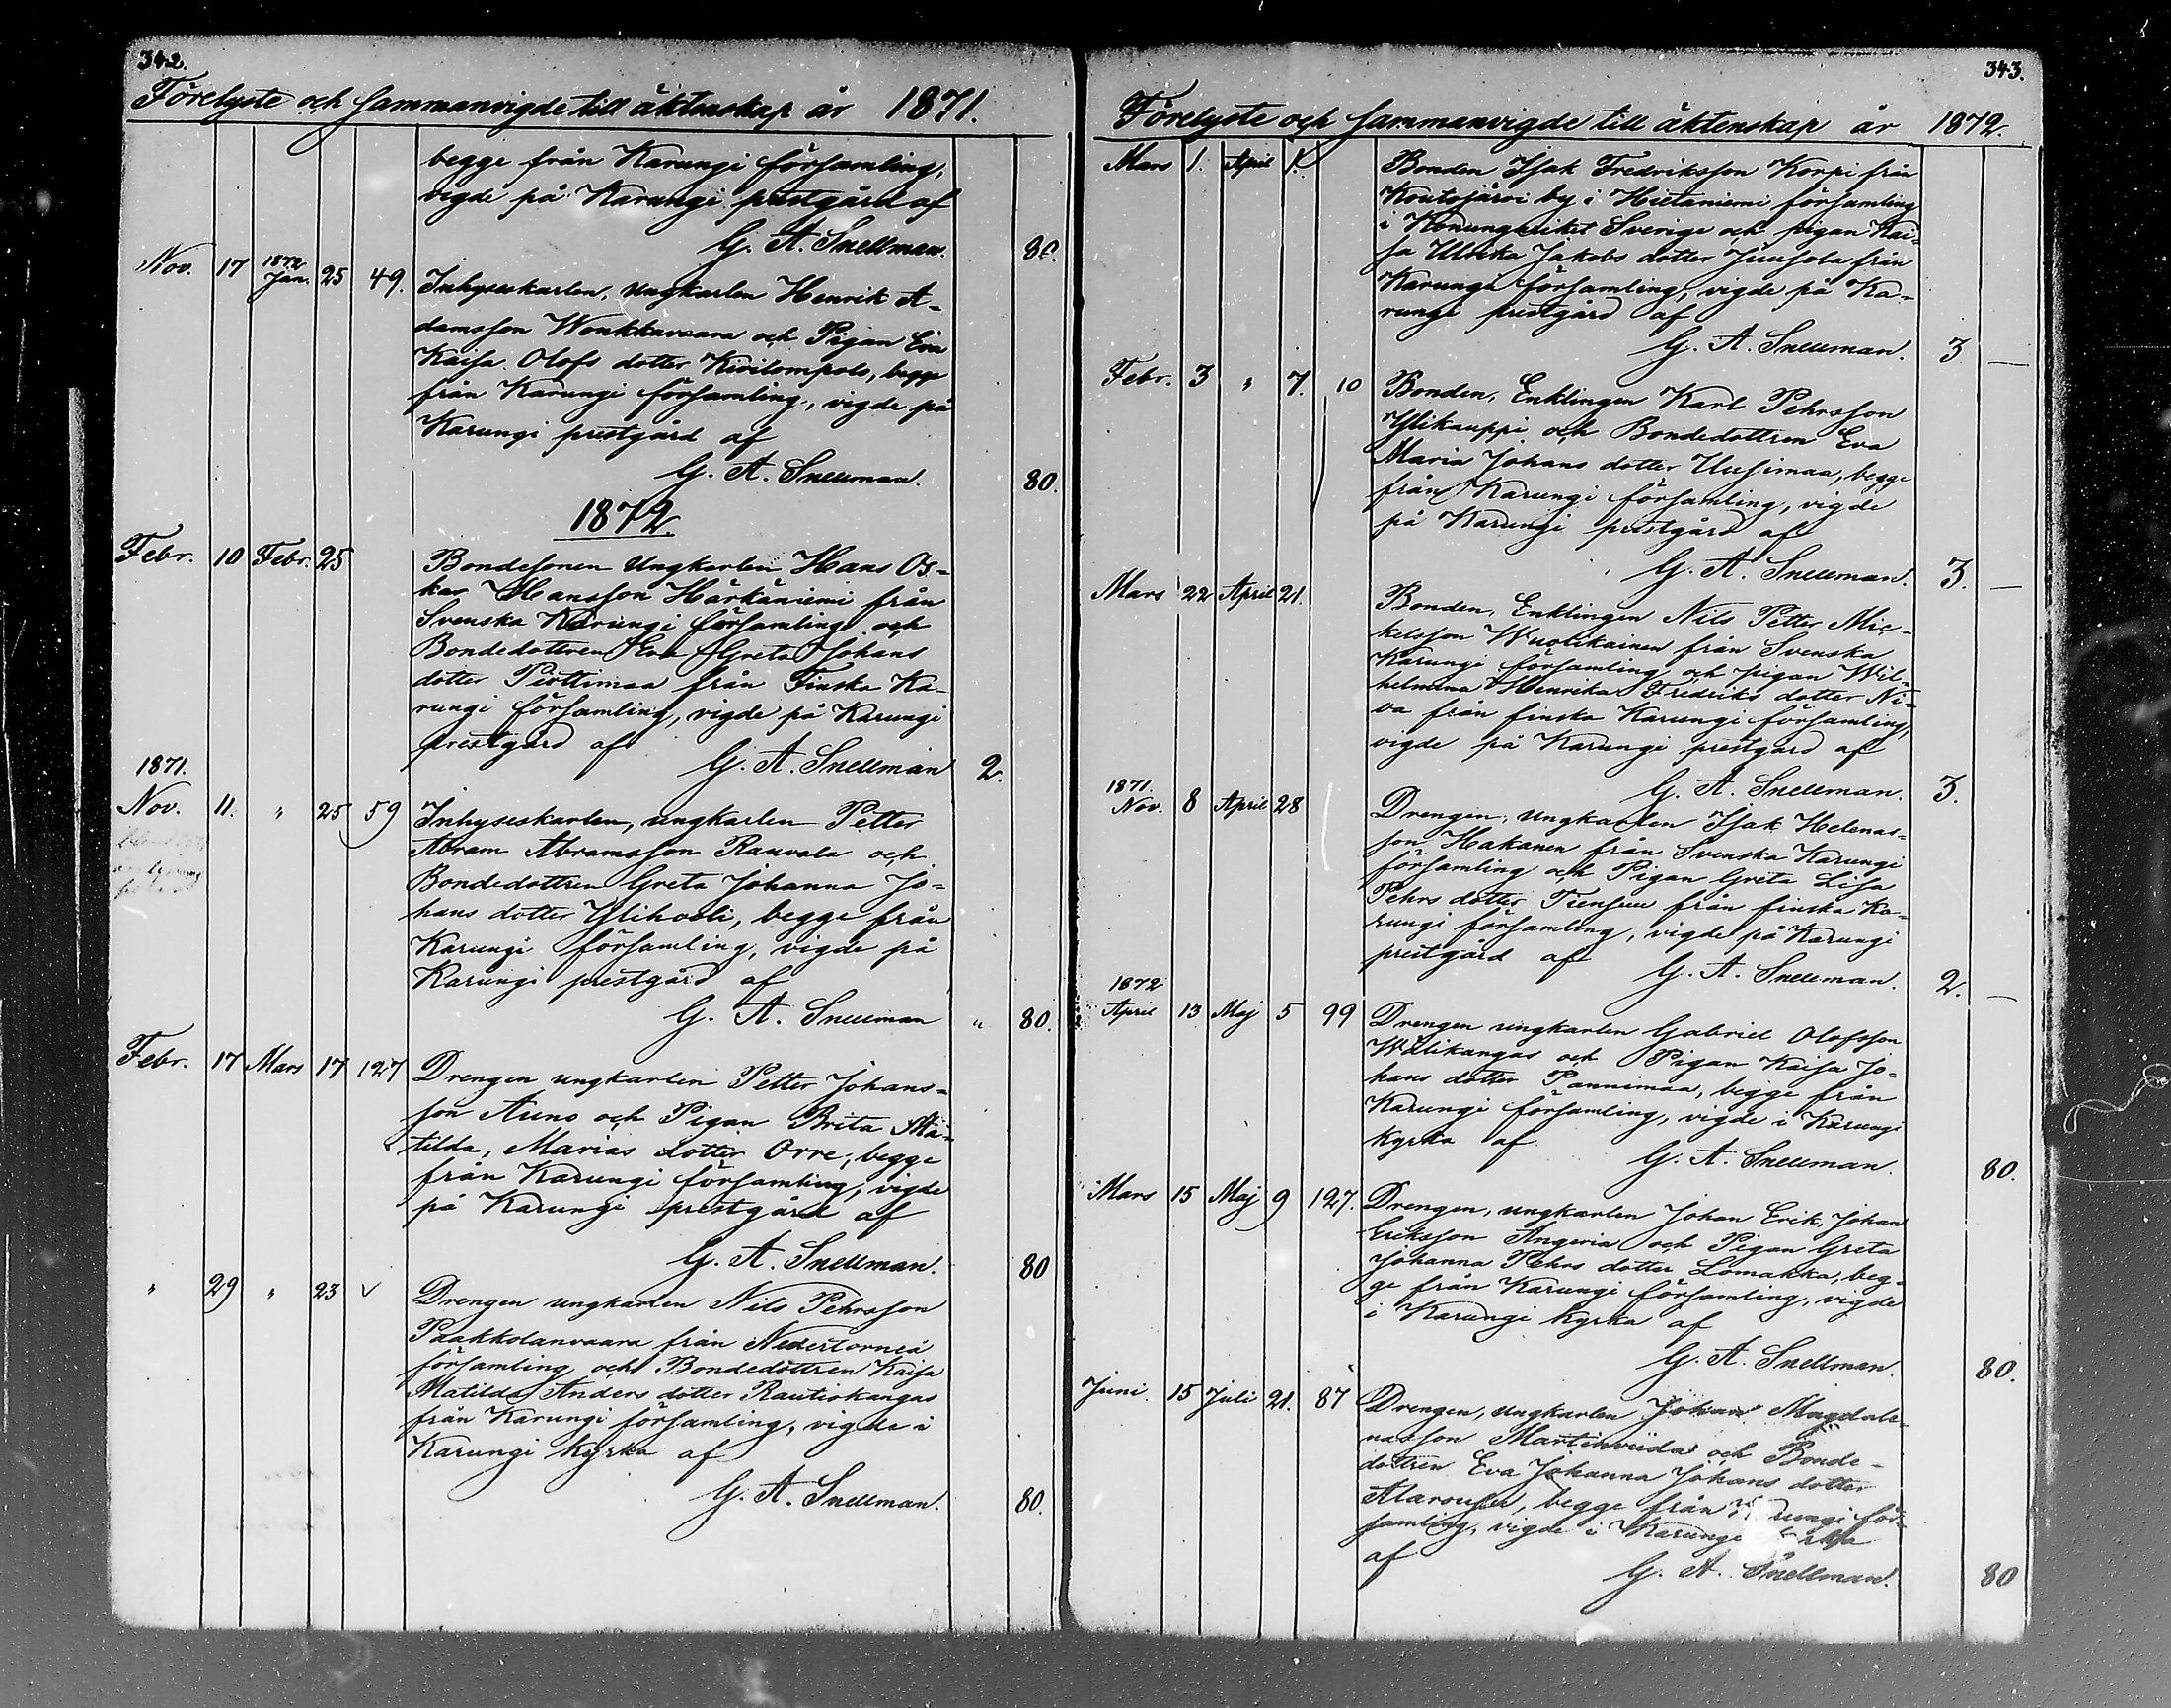 342.
Förelyste och sammanvigde till äktenskap år 1871.
begge från Karungi församling,
vigde på Karungi prestgård af
G. A. Snellman. 80.
Nov. 17 1872 Jan. 25 49. Inhyseskarlen, ungkarlen Henrik A-
damsson Wonkkavaara och Pigan Eva
Kaisa Olofs dotter Kivilompolo, begge
från Karungi församling, vigde på
Karungi prestgård af
G. A. Snellman. 80.
1872.
Febr. 10 Febr. 25 Bondesonen Ungkarlen Hans Os-
kar Hansson Härkäniemi från
Svenska Karungi församling och
Bondedottren Eva Greta Johans
dotter Piöttimaa från Finska Ka-
rungi församling, vigde på Karungi
prestgård af G. A. Snellman 2.
1871.
Nov. 11. " 25 59 Inhyseskarlen, ungkarlen Petter
Abram Abramsson Rauvala och
Bondedottren Greta Johanna Jo-
hans dotter Ylihooli, begge från
Karungi församling, vigde på
Karungi prestgård af
G. A. Snellman " 80.
Febr. 17 Mars 17 127 Drengen ungkarlen Petter Johans-
son Auno och Pigan Brita Ma-
tilda, Marias dotter Orre, begge
från Karungi församling, vigde
på Karungi prestgård af
G. A. Snellman. 80
" 29 " 23 v Drengen ungkarlen Nils Pehrsson
Paakkolanvaara från Nedertorneå
församling och Bondedottren Kaisa
Matilda Anders dotter Rautiokangas
från Karungi församling, vigde i
Karungi kyrka af
G. A. Snellman. 80.
343.
Förelyste och sammanvigde till äktenskap år 1872.
Mars 1. April 1. Bonden Isak Fredriksson Korpi från
Koutojärvi by i Hietaniemi församling
i Konungariket Sverige och pigan Kai-
sa Ulrika Jakobs dotter Juusola från
Karungi församling, vigde på Ka-
rungi prestgård af
G. A. Snellman. 3 —
Febr. 3 " 7. 10 Bonden, Enklingen Karl Pehrsson
Ylikauppi och Bondedottren Eva
Maria Johans dotter Uusimaa, begge
från Karungi församling, vigde
på Karungi prestgård af
G. A. Snellman. 3. —
Mars 22 April 21. Bonden, Enklingen Nils Petter Mic-
kelsson Wuolikainen från Svenska
Karungi församling och pigan Wil-
helmina Henrika Fredriks dotter Ni-
va från finska Karungi församling,
vigde på Karungi prestgård af
G. A. Snellman. 3.
1871.
Nov. 8 April 28 Drengen, Ungkarlen Isak Helenas-
son Hakanen från Svenska Karungi
församling och Pigan Greta Lisa
Pehrs dotter Tiensuu från finska Ka-
rungi församling, vigde på Karungi
prestgård af G. A. Snellman. 2. —
1872
April 13 Maj 5 99 Drengen ungkarlen Gabriel Olofsson
Wälikangas och Pigan Kaisa Jo-
hans dotter Pannimaa, begge från
Karungi församling, vigde i Karungi
kyrka af
G. A. Snellman. 80.
Mars 15 Maj 9 127. Drengen, ungkarlen Johan Erik, Johan
Eriksson Angeria och Pigan Greta
Johanna Pehrs dotter Lomakka, beg-
ge från Karungi församling, vigde
i Karungi kyrka af
G. A. Snellman. 80.
Juni 15 Juli 21. 87 Drengen, ungkarlen Johan Magdale-
nasson Martinviida och Bonde-
dottren Eva Johanna Johans dotter
Alarousu, begge från Karungi för-
samling, vigde i Karungi kyrka
af
G. A. Snellman. 80